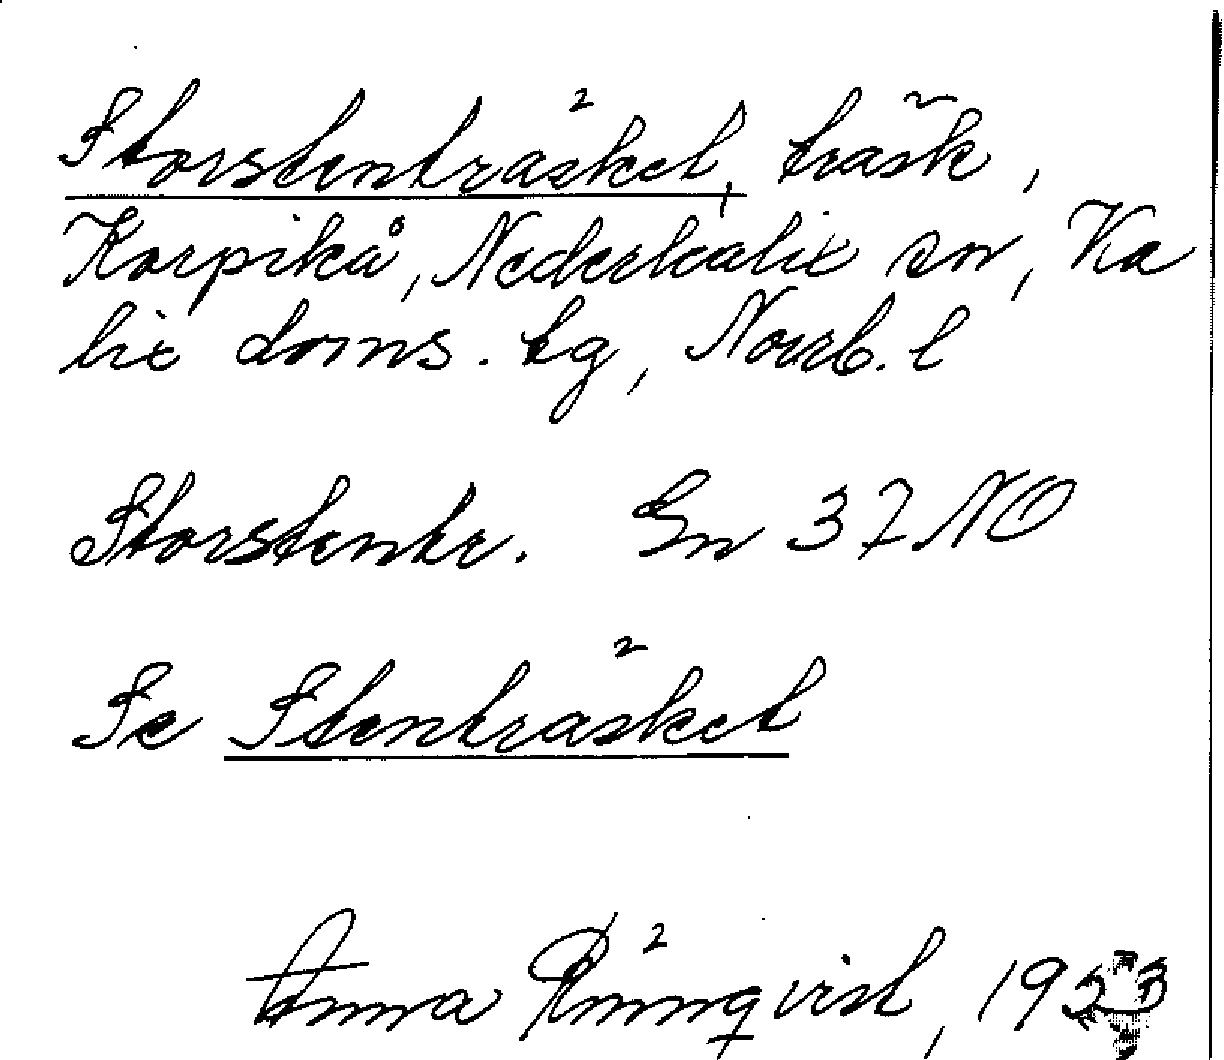 Storstenträsket, träsk,
Korpikå, Nederkalix sn, Ka
lix doms. tg, Norrb. l
Storstentr. Gn 37 NO
Se Stenträsket
Anna Rönnqvist, 1923